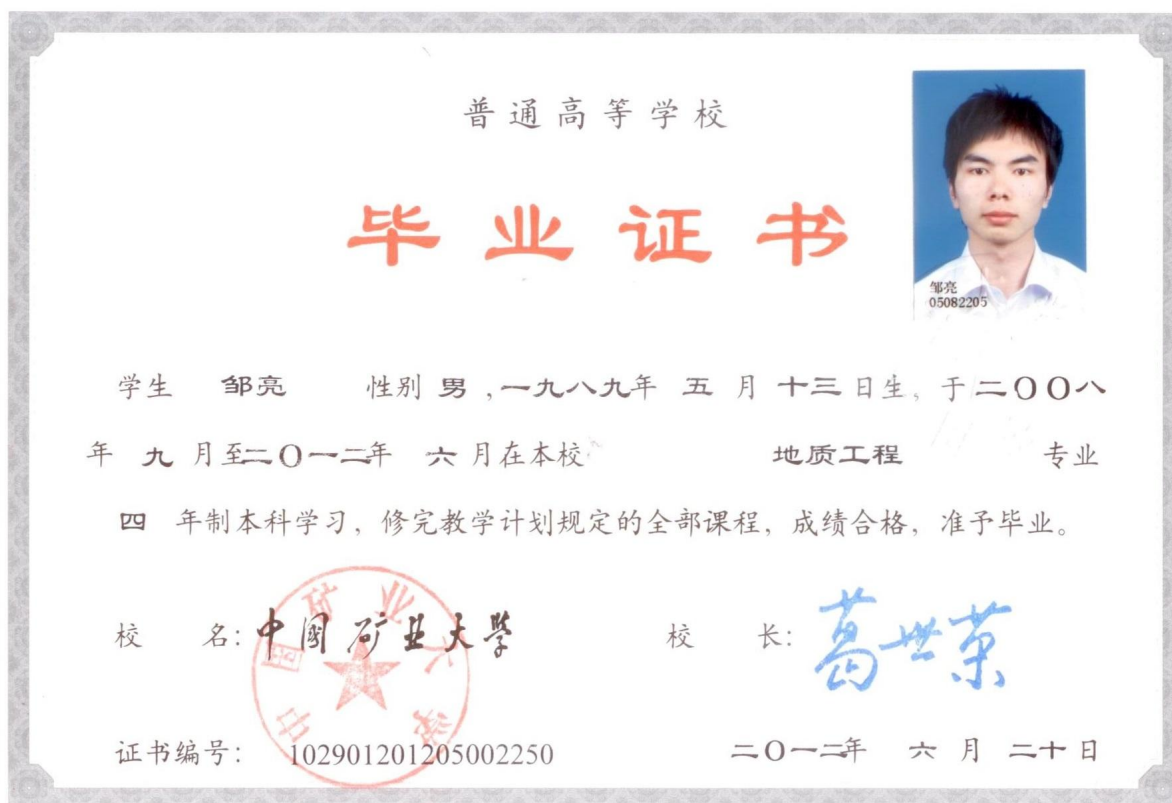 普通高等学校
毕业证书
邹亮
05082205
学生 邹亮 性别 男，一九八九年 五 月 十三 日生，于二〇〇八
年 九 月至二〇一二年 六 月在本校 地质工程 专业
四 年制本科学习，修完教学计划规定的全部课程，成绩合格，准予毕业。
校 名：中国矿业大学 校 长：葛世荣
中国矿业大学
证书编号： 102901201205002250 二〇一二年 六 月 二十 日